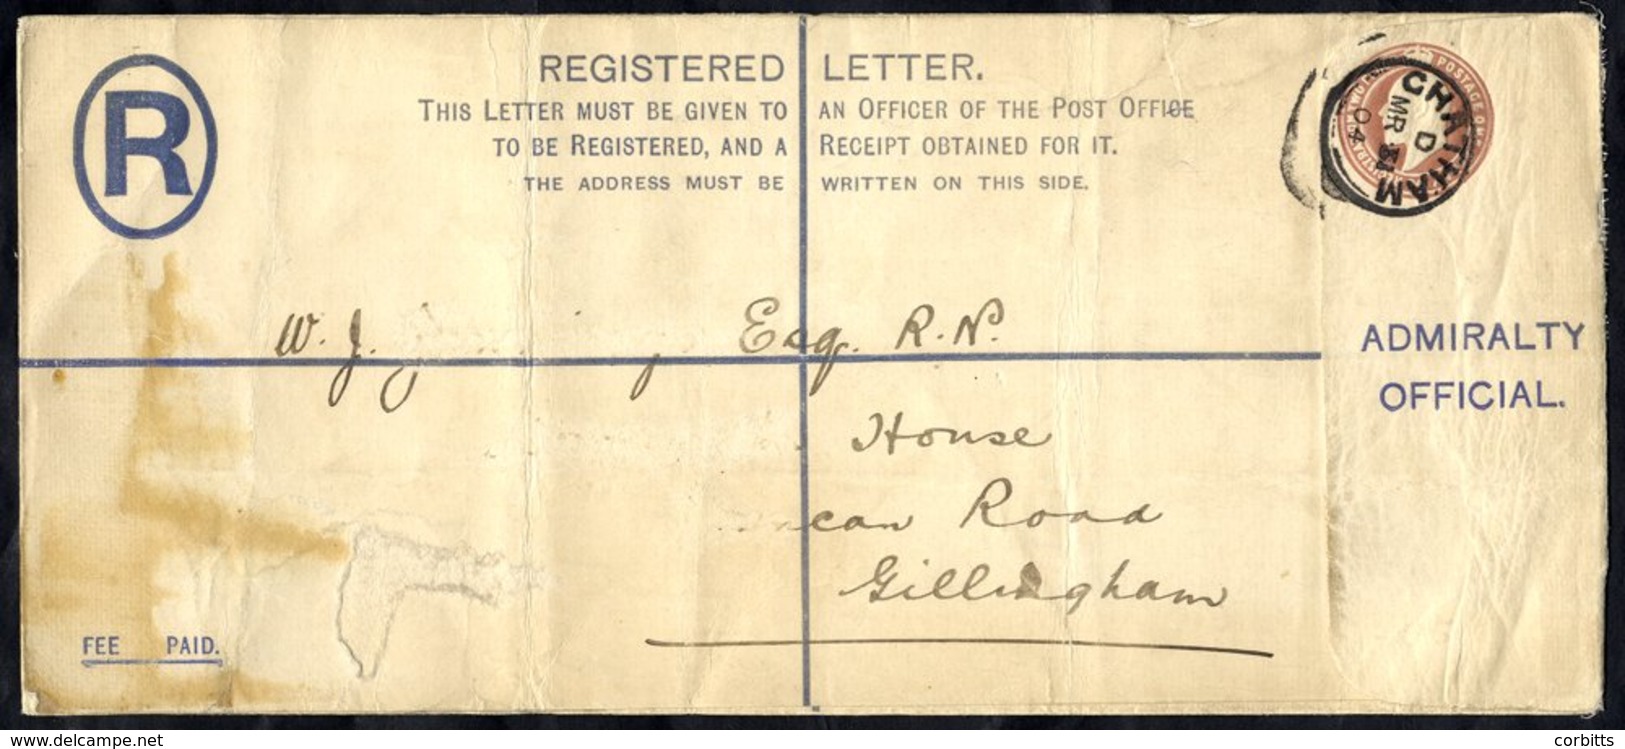 R
REGISTERED LETTER.
THIS LETTER MUST BE GIVEN TO AN OFFICER OF THE POST OFFICE
TO BE REGISTERED, AND A RECEIPT OBTAINED FOR IT.
THE ADDRESS MUST BE WRITTEN ON THIS SIDE.
POSTAGE
CHATHAM
D
MR
04
W. J. Esq. R.N.
ADMIRALTY
OFFICIAL.
House
Road
Gillingham
FEE PAID.
www.delcampe.net
corbitts